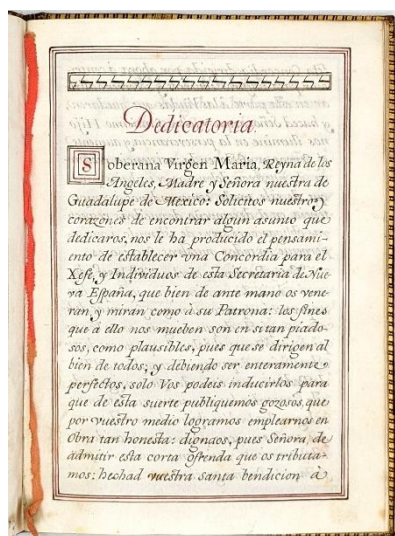 Dedicatoria.
Soberana Virgen Maria, Reyna de los
Angeles, Madre y Señora nuestra de
Guadalupe de Mexico: Solicitos nuestros
corazones de encontrar algun asunto que
dedicaros, nos le ha producido el pensami-
ento de establecer vna Concordia para el
Xefe, y Individuos de esta Secretaria de Nue-
va España, que bien de ante mano os vene-
ran, y miran como à su Patrona: los fines
que à ello nos mueben son en si tan piado-
sos, como plausibles, pues que se dirigen al
bien de todos, y debiendo ser enteramente
perfectos, solo Vos podeis inducirlos para
que de esta suerte publiquemos gozosos, que
por vuestro medio logramos emplearnos en
Obra tan honesta: dignaos, pues Señora, de
admitir esta corta ofrenda que os tributa-
mos; hechad vuestra santa bendicion à